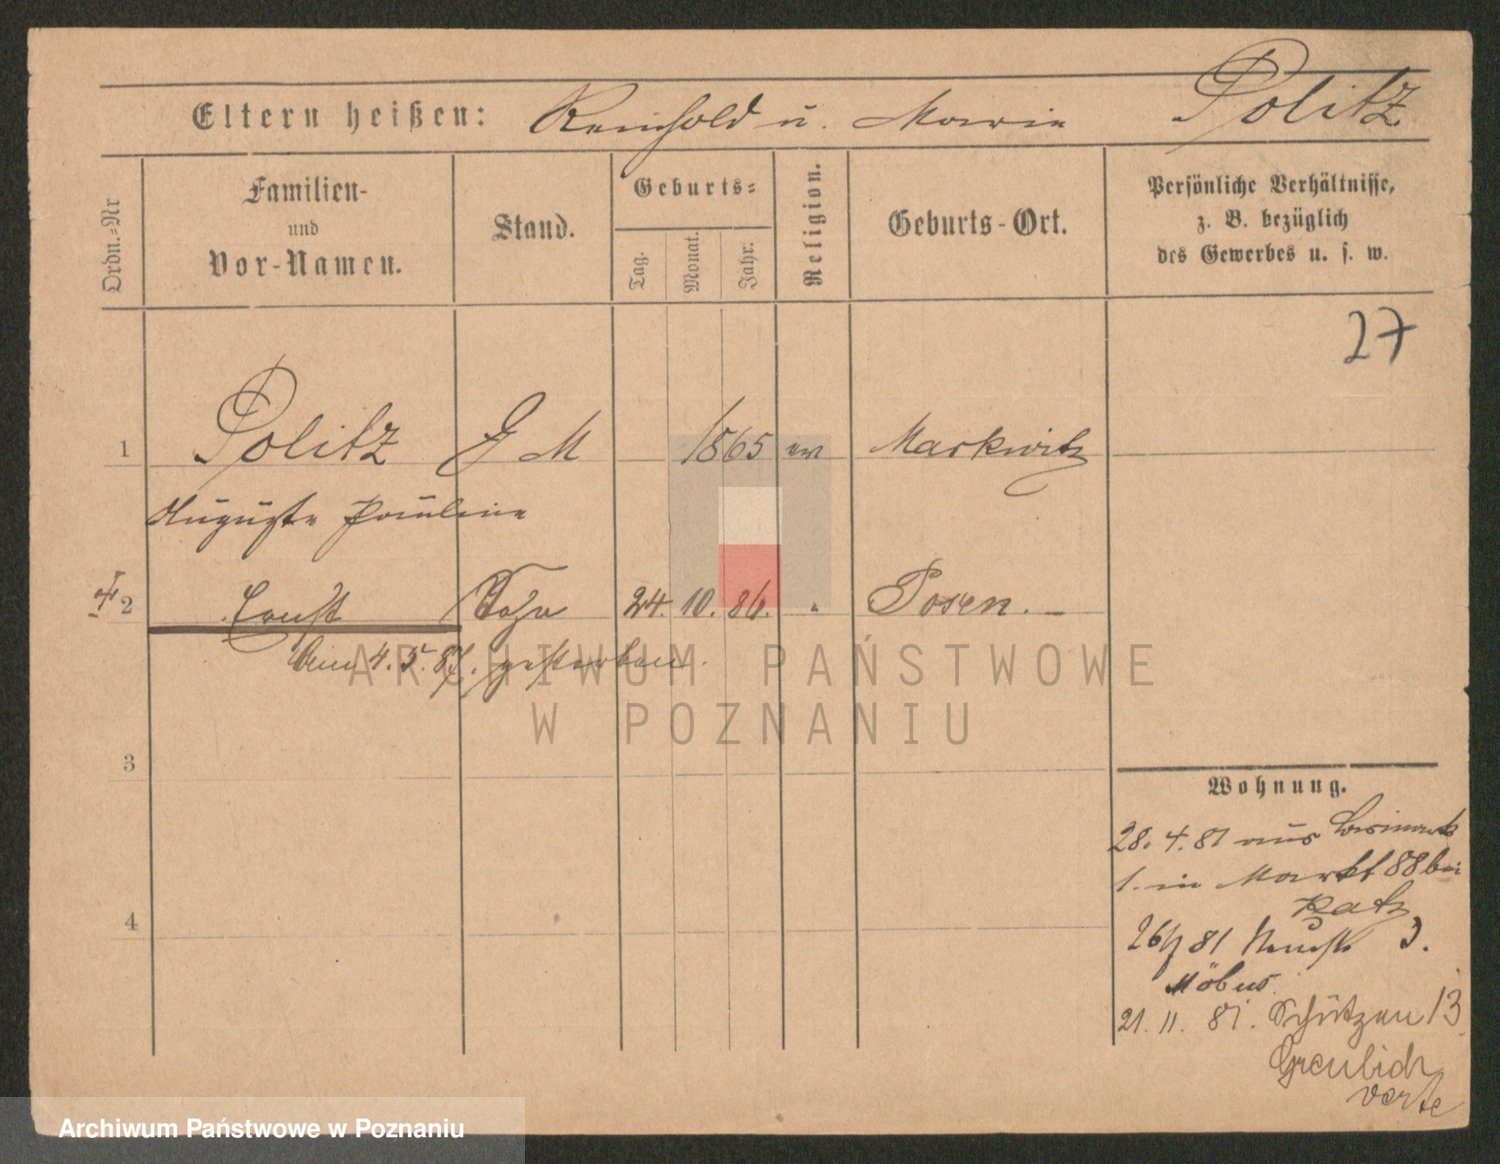 Eltern heißen: Reinhold u. Marie Politz
Ordn.-Nr
Familien-
und
Vor-Namen.
Stand.
Geburts-
Tag.
Monat.
Jahr.
Religion.
Geburts-Ort.
Persönliche Verhältnisse,
z. B. bezüglich
des Gewerbes u. s. w.
27
1 Politz M 1865 ev Markwitz
Auguste Pauline
2 Ernst Sohn 24. 10. 86. " Posen.
Am 4. 5. 87. gestorben.
ARCHIWUM PAŃSTWOWE
W POZNANIU
3
Wohnung.
28. 4. 81 aus Bismark
1. in Markt 88 bei
Katz
4
81 Neuest. 3.
Möbus.
21. 11. 81. Schützen 13
Greulich
verte
Archiwum Państwowe w Poznaniu